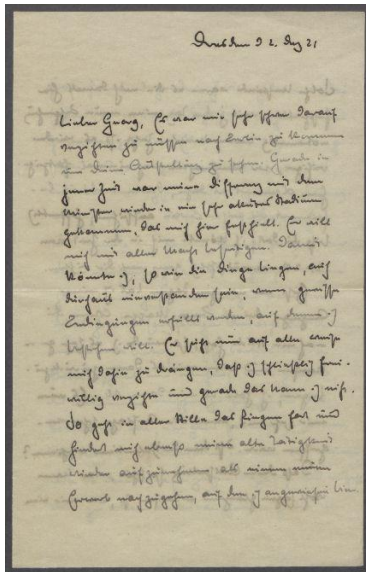 Dresden d 2. Dez 21
Lieber Georg, Es war mir sehr schwer darauf
verzichten zu müssen nach Berlin zu kommen
um Deine Ausstellung zu sehen. Gerade in
jener Zeit war meine Differenz mit dem
wieder in ein sehr akutes Stadium
gekommen, das mich hier festhielt. Er will
mich mit aller Macht beseitigen. Damit
könnte ich, so wie die Dinge liegen, auch
durchaus einverstanden sein, wenn gewisse
Bedingungen erfüllt werden, auf denen ich
bestehen will. Er sucht nun auf alle
mich dahin zu drängen, daß ich schließlich frei-
willig verzichte und gerade das kann ich nicht.
So geht in aller Stille das Ringen fort und
hindert mich ebenso meine alte Tätigkeit
wieder aufzunehmen, als einem neuen
Erwerb nachzugehen, auf den ich angewiesen bin.